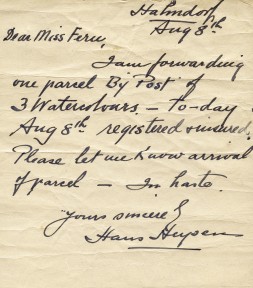 Hahndorf
Aug 8th
Dear Miss Fern,
I am forwarding
one parcel By Post of
3 Watercolours — to-day
Aug 8th registered & insured.
Please let me Know arrival
of parcel — In haste.
Yours sincerely
Hans Heysen